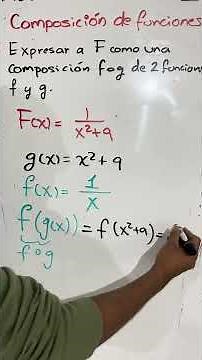 Composición de funciones
Expresar a F como una
composición fog de 2 funcion
f y g.
F(x) = 1/x²+9
g(x) = x²+9
f(x) = 1/x
f(g(x)) = f(x²+9) =
f o g